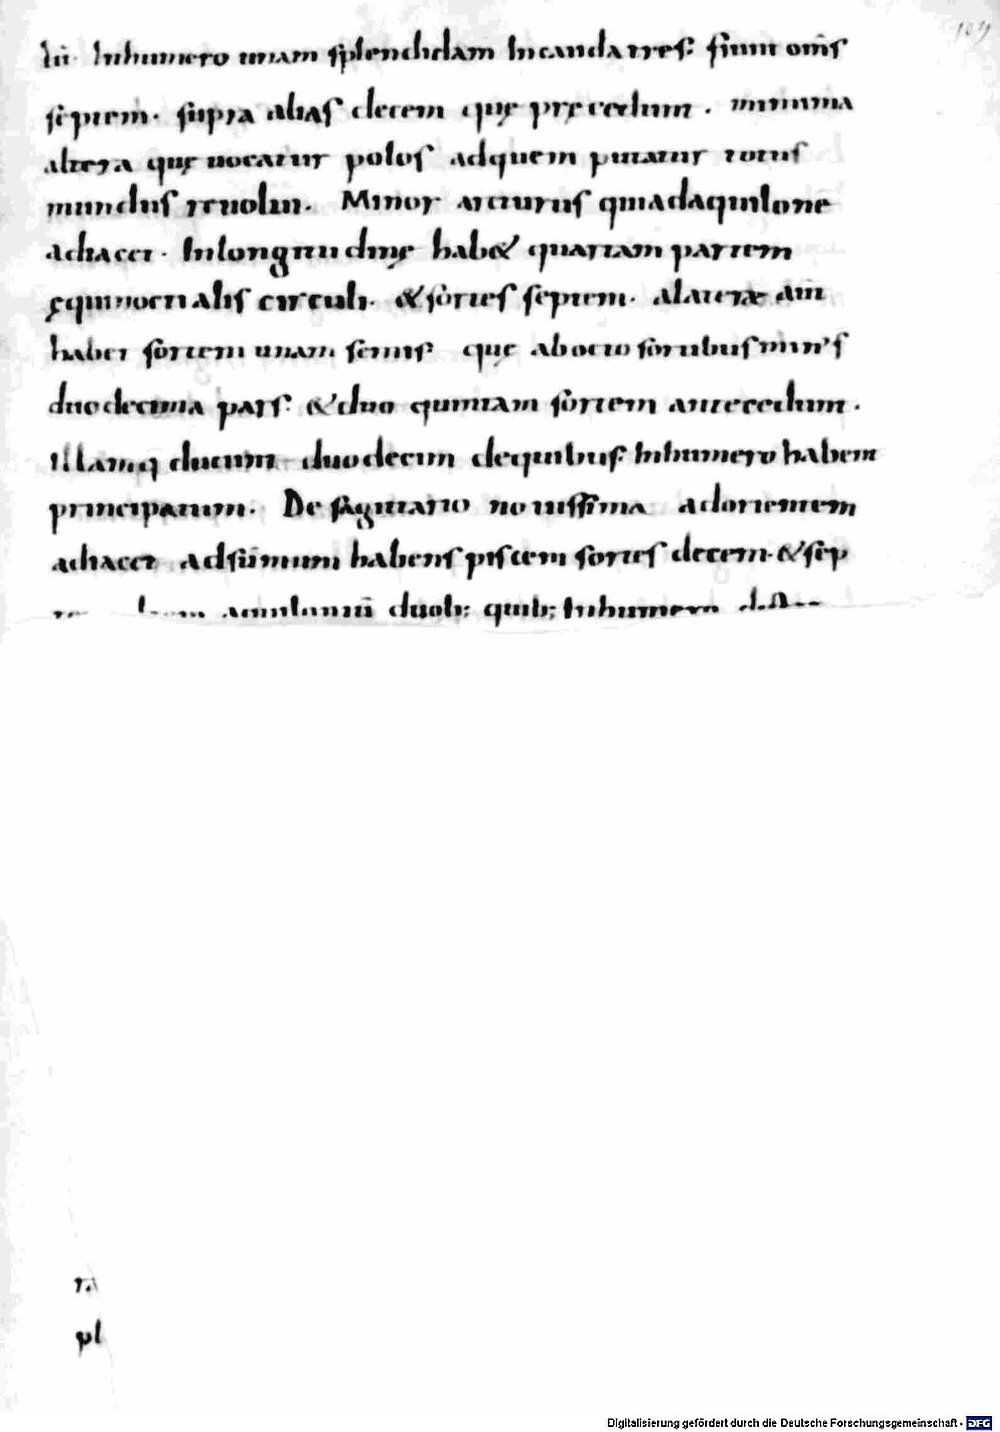 104
lii· Inhumero unam splendidam Incauda tres: fiunt om̄s
septem· supra alias decem quę pręcedunt· minima
altera quę uocatur polus adquem putatur totus
mundus reuolui· Minor arcturus quiadaquilone
adiacet· Inlongitudinę hab& quartam partem
ęquinoctialis circuli· & sortes septem· alateræ am̄
habet sortem unam semis· quę abocto sortibus
duodecima pars· &duo quintam sortem antecedunt·
Illamq ducunt duodecim dequibus Inhumero habent
principatum· De sagittario nouissima adorientem
adiacet adsūmum habens piscem sortes decem·&sep
aquiloniū duob; quib; Inhumero
pl
Digitalisierung gefördert durch die Deutsche Forschungsgemeinschaft - DFG